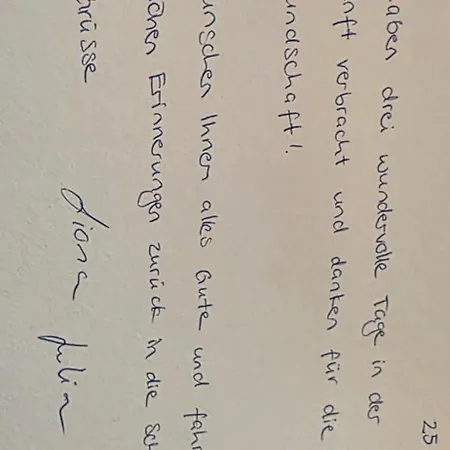 25
aben drei wundervolle Tage in der
nft verbracht und danken für die
undschaft!
unschen Ihnen alles Gute und fahr
Erinnerungen zurück in die Sch
rüsse
Julia